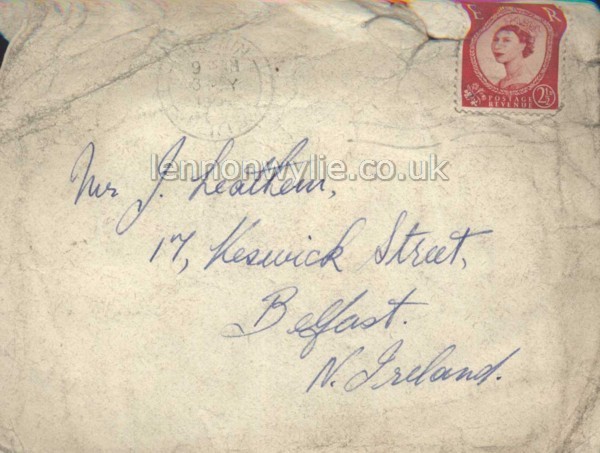 E R
POSTAGE
REVENUE
2½
lennonwylie.co.uk
Mr J. Leathem,
17, Keswick Street,
Belfast.
N. Ireland.